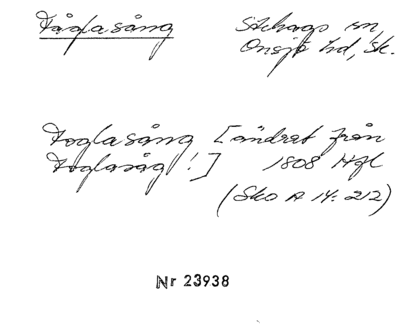 Fåglasång Stehags sn,
Onsjö hd, Sk.
Foglasång [ändrat från
Foglasåg!] 1808 Hfl
(Sko A 14: 212)
Nr 23938